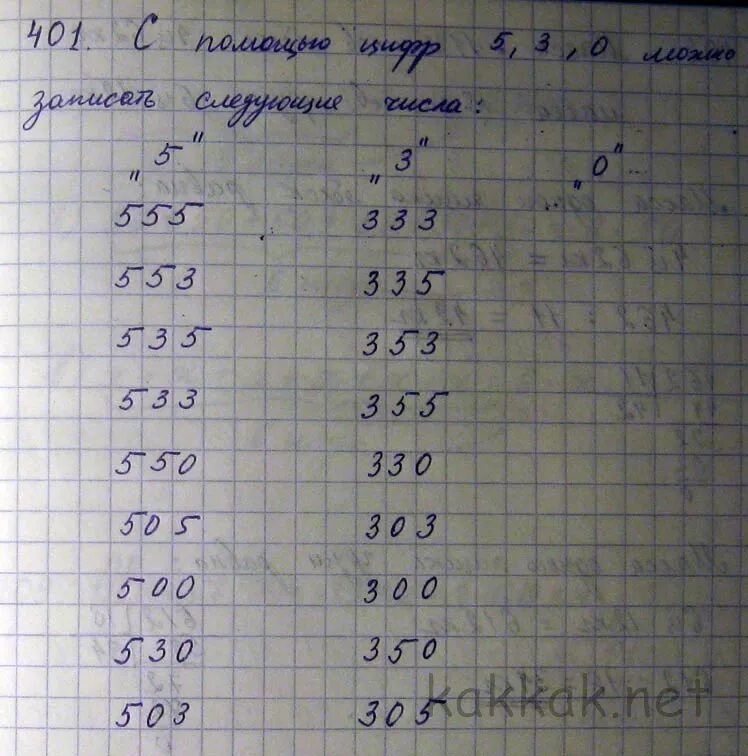 401. С помощью цифр 5, 3, 0 можно
записать следующие числа:
"5" "3" "0"
555 333
553 335
535 353
533 355
550 330
505 303
500 300
530 350
503 305
kakkak.net